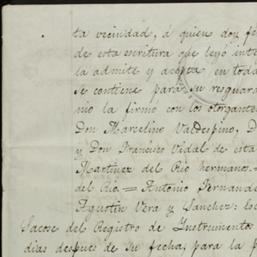 ta vecindad, á quien doy fe
de esta escritura que leyó inte
la admite y acepta en toda
se contiene para su resguar
nio la firmó con los otorgante
Don Marcelino Valdespino, D
y Don Francisco Vidal de esta
Martinez del Rio hermanos.=
del Rio.= Antonio Fernand
Agustin Vera y Sanchez: lo
Sacose del Registro de Instrumentos
dias despues de su fecha, para la p